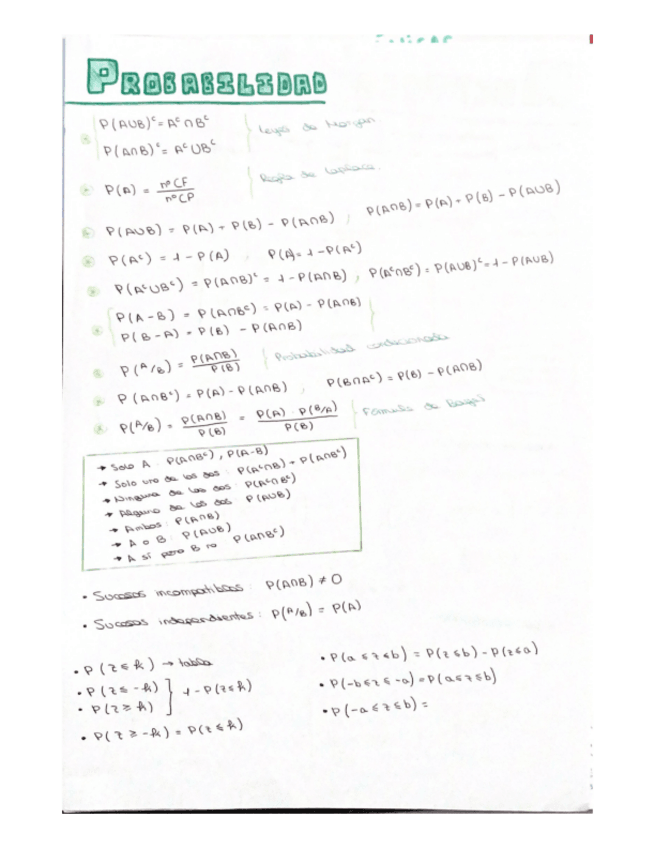 PROBABILIDAD
P(A∪B)ᶜ = Aᶜ∩Bᶜ
P(A∩B)ᶜ = Aᶜ∪Bᶜ
Leyes de Morgan.
P(A) = nº CF / nº CP
Regla de Laplace.
P(A∪B) = P(A) + P(B) - P(A∩B) , P(A∩B) = P(A) + P(B) - P(A∪B)
P(Aᶜ) = 1 - P(A) , P(A) = 1 - P(Aᶜ)
P(Aᶜ∪Bᶜ) = P(A∩B)ᶜ = 1 - P(A∩B) , P(Aᶜ∩Bᶜ) = P(A∪B)ᶜ = 1 - P(A∪B)
P(A-B) = P(A∩Bᶜ) = P(A) - P(A∩B)
P(B-A) = P(B) - P(A∩B)
P(A/B) = P(A∩B) / P(B) Probabilidad condicionada
P(A∩Bᶜ) = P(A) - P(A∩B) , P(B∩Aᶜ) = P(B) - P(A∩B)
P(A/B) = P(A∩B) / P(B) = P(A) · P(B/A) / P(B) Fórmula de
→ Solo A : P(A∩Bᶜ) , P(A-B)
→ Solo uno de los dos : P(Aᶜ∩B) + P(A∩Bᶜ)
→ Ninguno de los dos : P(Aᶜ∩Bᶜ)
→ Alguno de los dos P(A∪B)
→ Ambos : P(A∩B)
→ A o B : P(A∪B)
→ A sí pero B no P(A∩Bᶜ)
• Sucesos incompatibles : P(A∩B) ≠ 0
• Sucesos independientes : P(A/B) = P(A)
• P(z ≤ k) → tabla
• P(z ≤ -k)
• P(z ≥ k)
] 1 - P(z ≤ k)
• P(z ≥ -k) = P(z ≤ k)
• P(a ≤ z ≤ b) = P(z ≤ b) - P(z ≤ a)
• P(-b ≤ z ≤ -a) = P(a ≤ z ≤ b)
• P(-a ≤ z ≤ b) =